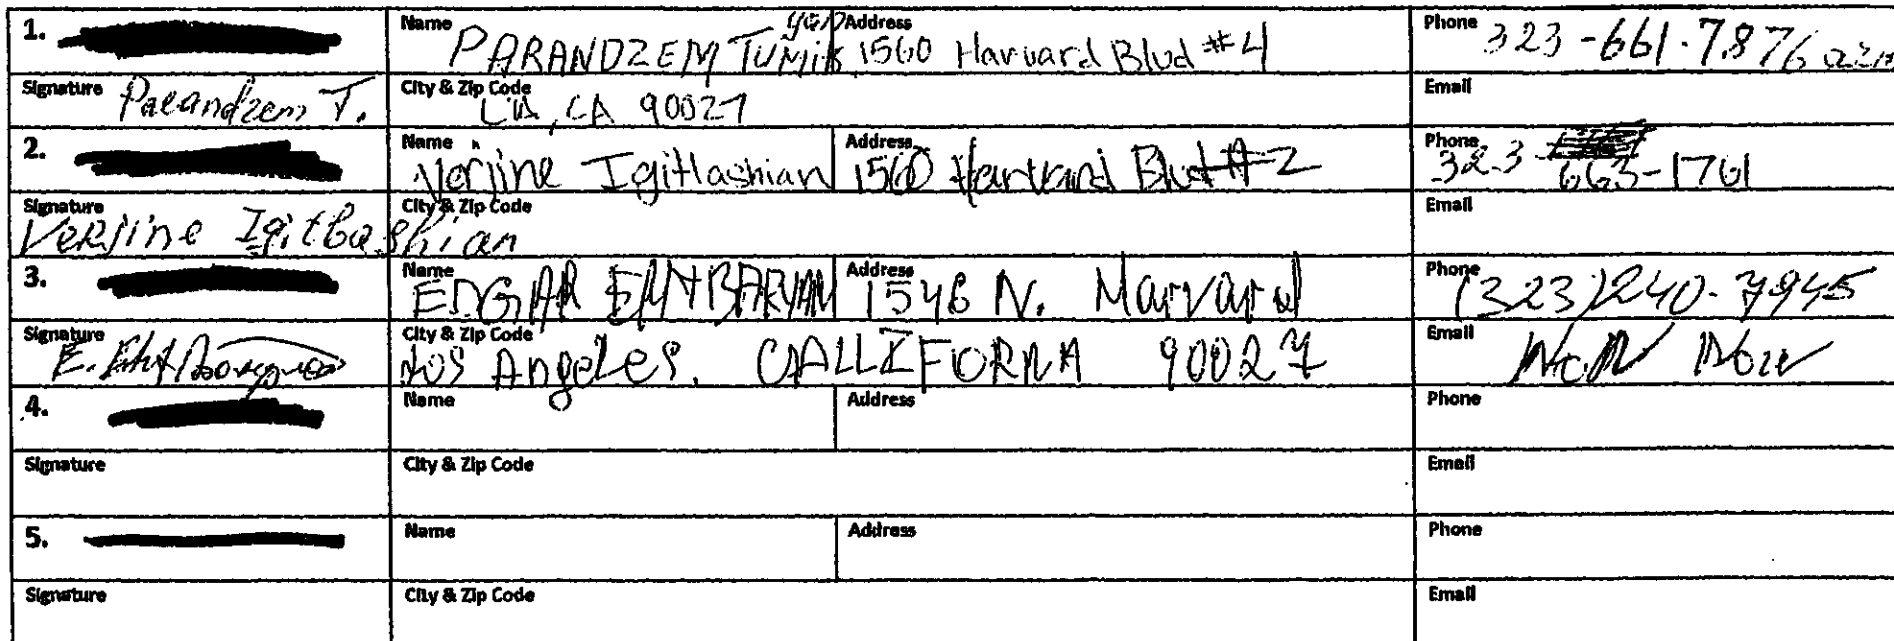 1. Name PARANDZEM TUMIK yan Address 1560 Harvard Blvd #4 Phone 323-661-7876
Signature Parandzem T. City & Zip Code LA, CA 90027 Email
2. Name Verjine Igitlashian Address 1560 Harvard Blvd #2 Phone 323 663-1761
Signature Verjine Igitbashian City & Zip Code Email
3. Name EDGAR Address 1546 N. Harvard Phone (323) 240-7945
Signature E. City & Zip Code Los Angeles. CALLIFORNA 90027 Email
4. Name Address Phone
Signature City & Zip Code Email
5. Name Address Phone
Signature City & Zip Code Email